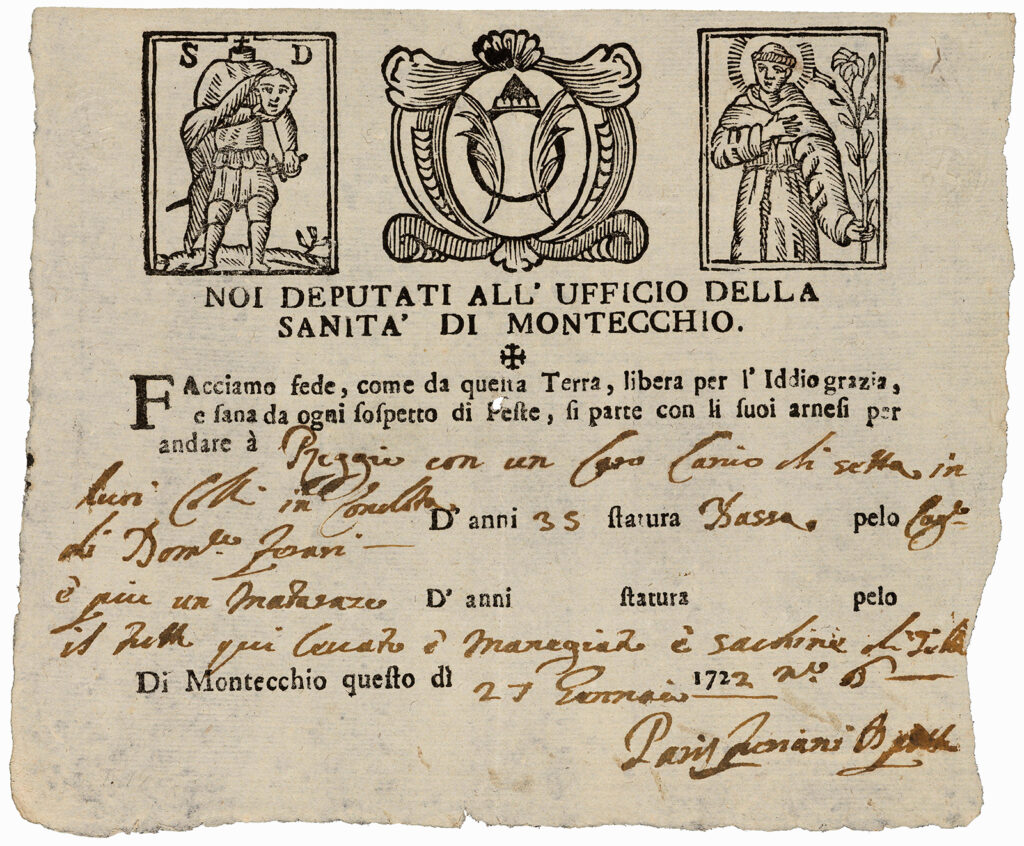 S D
NOI DEPUTATI ALL' UFFICIO DELLA
SANITA' DI MONTECCHIO.
FAcciamo fede, come da questa Terra, libera per l' Iddio grazia,
e sana da ogni sospetto di Peste, si parte con li suoi arnesi per
andare à Reggio con un Caro Carico di setta in
in Condotta
D' anni 35 statura Bassa. pelo
di Dom.co
è piu un Matarazo D' anni statura pelo
il tutto qui è è di
Di Montecchio questo dì 27 Gennaio 1722 n.o 6